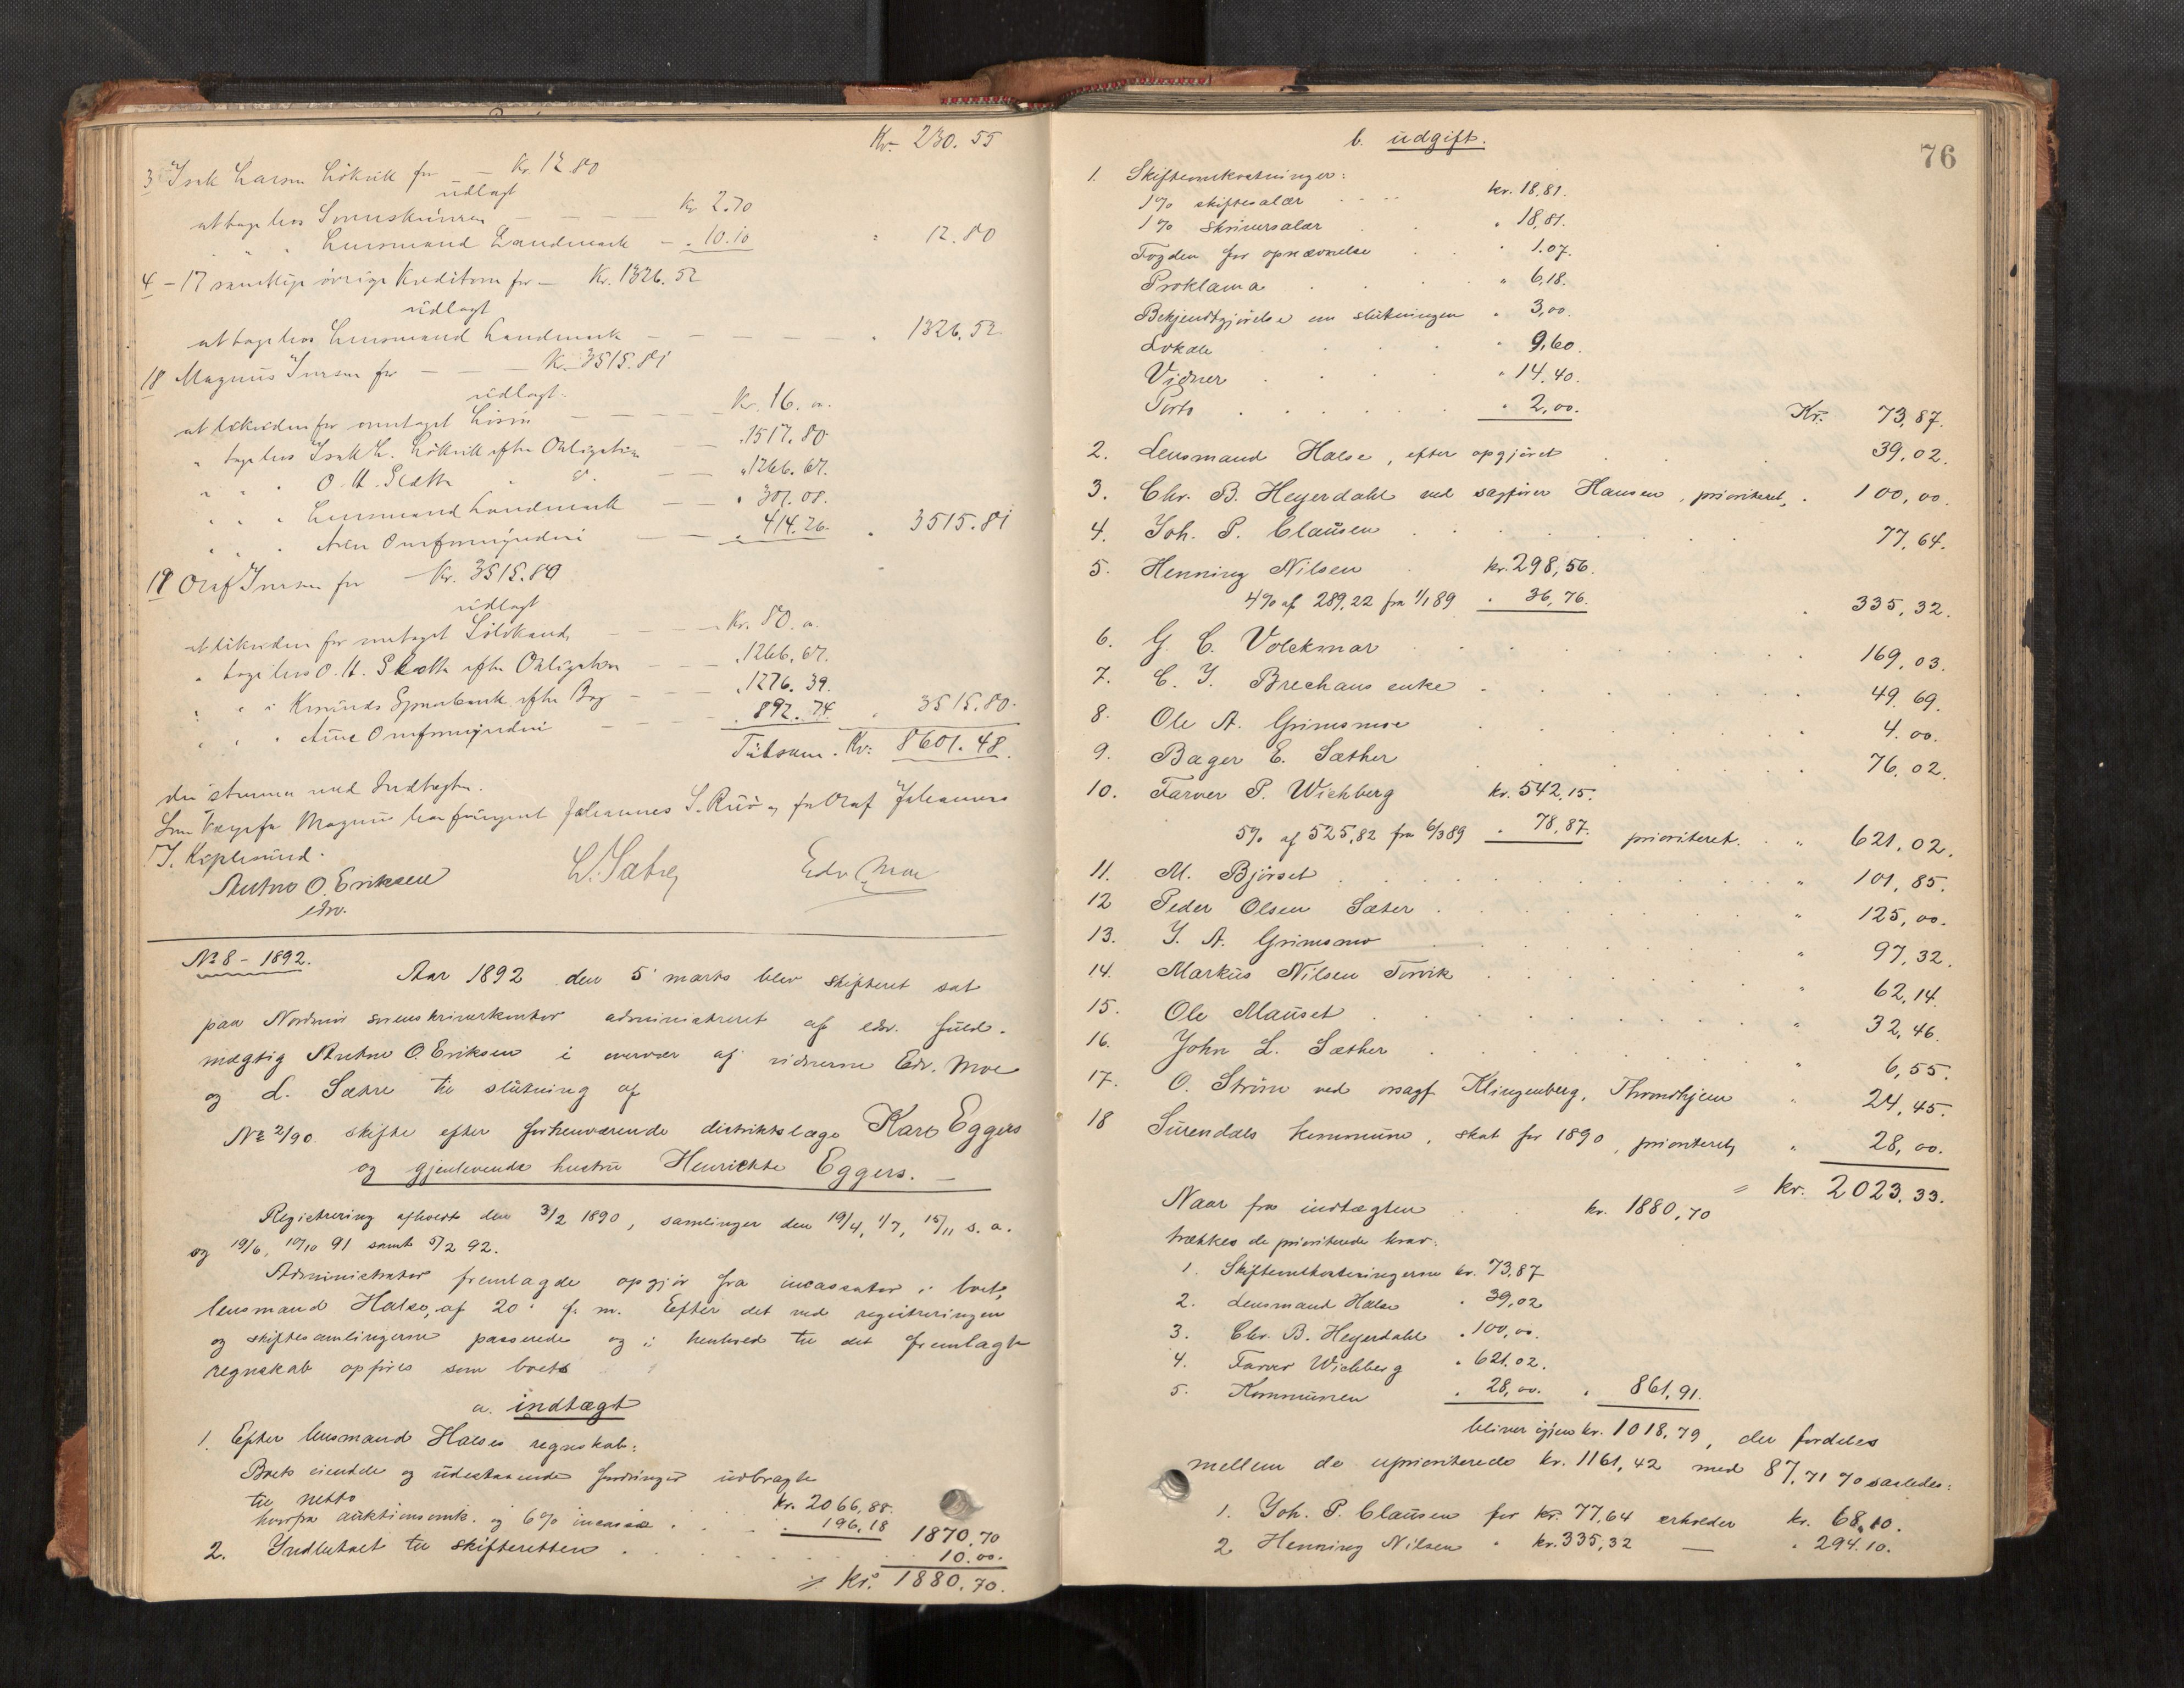 Kr. 230.55
3 Isak Larsen Lökvik for — Kr. 12.80
udlagt
at tage hos Sorenskriveren — — — Kr. 2.70
" " Lensmand Landmark — " 10.10 " 12.80
4 – 17 samtlige övrige Kreditorer for — Kr. 1326.52
udlagt
at tage hos Lensmand Landmark — — — — " 1326.52
18 Magnus Iversen for — — Kr. 3515.81
udlagt.
at likvidere for modtaget Lösöre — — — Kr. 16. "
" tage hos Isak L. Lökvik efter Obligation — — " 1517.80
" " " O. A. Sletta " d°. — — " 1266.67.
" " " Lensmand Landmark — — " 301.08.
" " " Overformynderi — — " 414.26. " 3515.81
19 Olaf Iversen for — Kr. 3515.80
udlagt
at likvidere for modtaget — — — Kr. 80. "
" tage hos O. A. Sletta efter Obligation — — " 1266.67.
" " i Kr.sunds Sparebank efter Bog — — " 1276.39.
" " " Overformynderi — — " 892.74 " 3515.80.
Tilsam. Kr. 8601.48.
der stemmer med Indtægten.
Som Værge for Magnus har fungeret Johannes S. og for Olaf Johannes
I.
Anton O. Eriksen L. Sætre Edv. Moe
edsv.
No 8 – 1892.
Aar 1892 den 5' marts blev skifteret sat
paa Nordmør sorenskriverkontor administreret af edsv. fuld-
mægtig Anton O. Eriksen i overvær af vidnerne Edv. Moe
og L. Sætre til slutning af
No 2/90. skifte efter forhenværende distriktslæge Karl Eggers
og gjenlevende hustru Henriette Eggers. —
Registrering afholdt den 3/2 1890, samlinger den 19/4, 1/7, 15/11 s. a.
og 19/6, 10/10 91 samt 5/2 92.
Administrator fremlagde opgjör fra incassator i boet,
lensmand Halse, af 20' f. m. Efter det ved registreringen
og skiftesamlingerne passerede og i henhold til det fremlagte
regnskab opföres som boets
a. indtægt
1. Efter lensmand Halses regnskab:
Boets eiendele og udestaaende fordringer udbragte
til netto kr. 2066,88.
hvorfra auktionsomk. og 6% incasso . . . " 196,18 1870,70
2. Indbetalt til skifteretten . . . . . 10.00.
= kr. 1880,70.
76
b. udgift.
1. Skifteomkostninger:
1% skiftesalær . . . . kr. 18,81.
1% skriversalær " 18,81.
Fogden for opnævnelse . . " 1.07.
Proklama . . . . " 6,18.
Bekjendtgjörelse om slutningen " 3,00.
Lokale . . . . " 9,60.
Vidner . . . . " 14,40.
Porto . . . . . " 2,00. Kr. 73,87.
2. Lensmand Halse, efter opgjöret . . . 39,02.
3. Chr. B. Heyerdahl ved sagförer Hansen, prioriteret, . 100,00.
4. Joh. P. Clausen . . . . . 77,64.
5. Henning Nilsen . kr. 298,56.
4% af 289,22 fra 1/1 89 " 36,76. . 335,32.
6. G. C. Volckmar . . . . . 169,03.
7. C. J. Brechans enke . . . . . 49.69.
8. Ole A. Grimsmoe . . . . . 4.00.
9. Bager E. Sæther . . . . . 76,02.
10. Farver P. Wichberg kr. 542,15.
5% af 525,82 fra 6/3 89 " 78,87. prioriteret. . " 621,02.
11. M. Bjørset . . . . . " 101,85.
12 Peder Olsen Sæter . . . . . " 125,00.
13. J. A. Grimsmo . . . . . " 97,32.
14. Markus Nilsen Torvik . . . . . " 62,14.
15. Ole Mauset . . . . . " 32,46.
16. John L. Sæther . . . . . " 6,55.
17. O. Ström ved orsagf. Klingenberg, Throndhjem " 24,45.
18 Surendals kommune, skat for 1890, prioriteret, " 28,00.
= kr. 2023.33.
Naar fra indtægten . . kr. 1880,70
trækkes de prioriterede krav:
1. Skifteomkostningerne kr. 73,87
2. Lensmand Halse " 39,02
3. Chr. B. Heyerdahl " 100,00.
4. Farver Wichberg " 621.02.
5. Kommunen " 28,00. " 861,91.
bliver igjen kr. 1018,79, der fordeles
mellem de uprioriterede kr. 1161,42 med 87,71 % saaledes:
1. Joh. P. Clausen for kr. 77,64 erholder kr. 68,10.
2 Henning Nilsen " kr. 335,32 — " 294.10.